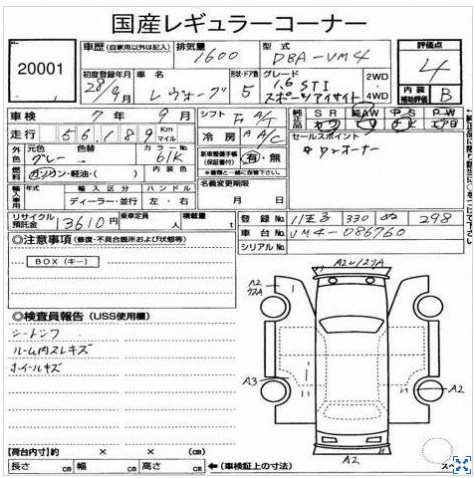 国産レギュラーコーナー
20001
車歴(自家用以外は記入)
排気量 1600
型式 DBA-VM4
評価点 4
初度登録年月 28/9月
車名 レヴォーグ
形状・ドア数 5
グレード 1.6 STI スポーツアイサイト
2WD
4WD
内装補助評価 B
車検 7年9月
走行 56,189 Km マイル
シフト A/T
冷房 A A/C
純正 SR 純AW PS PW
外色 元色 グレー 色替 カラーNo 61K
燃料 ガソリン・軽油・( ) 内装色
新車整備手帳(保証書付) 有・無
※書類と一緒に保管下さい。
セールスポイント
ワンオーナー
輸入車用 年式 輸入区分 ハンドル
ディーラー・並行 左・右
名義変更期限
月 日
リサイクル預託金 13610円
乗車定員 人
積載量 t
登録No. 330 298
車台No. VM4-086760
シリアルNo.
◎注意事項(修復・不具合箇所および状態等)
BOX(キー)
◎検査員報告(USS使用欄)
シートシワ
ルーム内スレキズ
ホイールキズ
A2
A3
A2
A2
【荷台内寸】約 × × (cm)
長さ cm 幅 cm 高さ cm
←(車検証上の寸法)